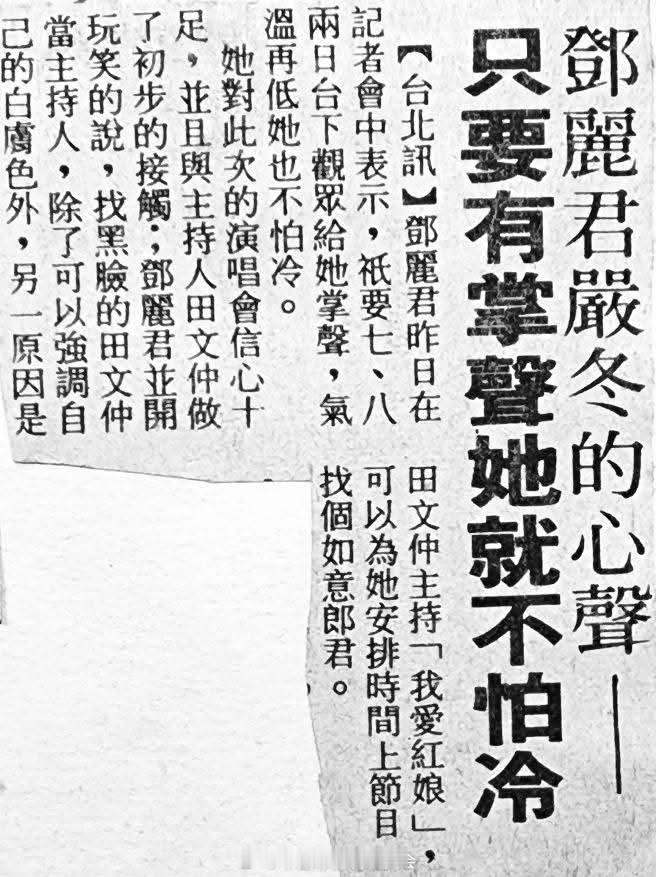 鄧麗君嚴冬的心聲——
只要有掌聲她就不怕冷
【台北訊】鄧麗君昨日在
記者會中表示，祇要七、八
兩日台下觀眾給她掌聲，氣
溫再低她也不怕冷。
她對此次的演唱會信心十
足，並且與主持人田文仲做
了初步的接觸；鄧麗君並開
玩笑的說，找黑臉的田文仲
當主持人，除了可以強調自
己的白膚色外，另一原因是
田文仲主持「我愛紅娘」，
可以為她安排時間上節目
找個如意郎君。